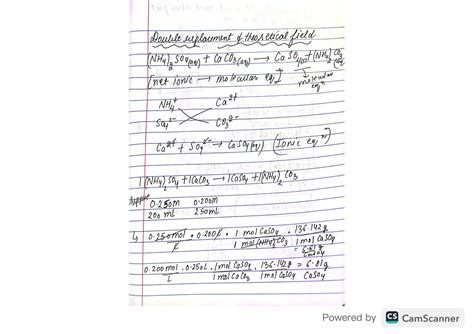 Double replacement & theoretical field
(NH4)2SO4(aq) + CaCO3(aq) → CaSO4(s) + (NH4)2CO3(aq)
[net ionic → molecular eqn]
molecular eqn
NH4+ Ca2+
SO42- CO32-
Ca2+ + SO42- → CaSO4 (Ionic eqn)
1(NH4)2SO4 + 1CaCO3 → 1CaSO4 + 1(NH4)2CO3
0.250m 0.200m
200 mL 250mL
0.250mol · 0.200L · 1 mol CaSO4 · 136.142g
L 1 mol (NH4)2CO3 1 mol CaSO4
= 6.81g CaSO4
0.200mol · 0.250L · 1mol CaSO4 · 136.142g = 6.81g
L 1mol CaCO3 1mol CaSO4 CaSO4
Powered by CS CamScanner